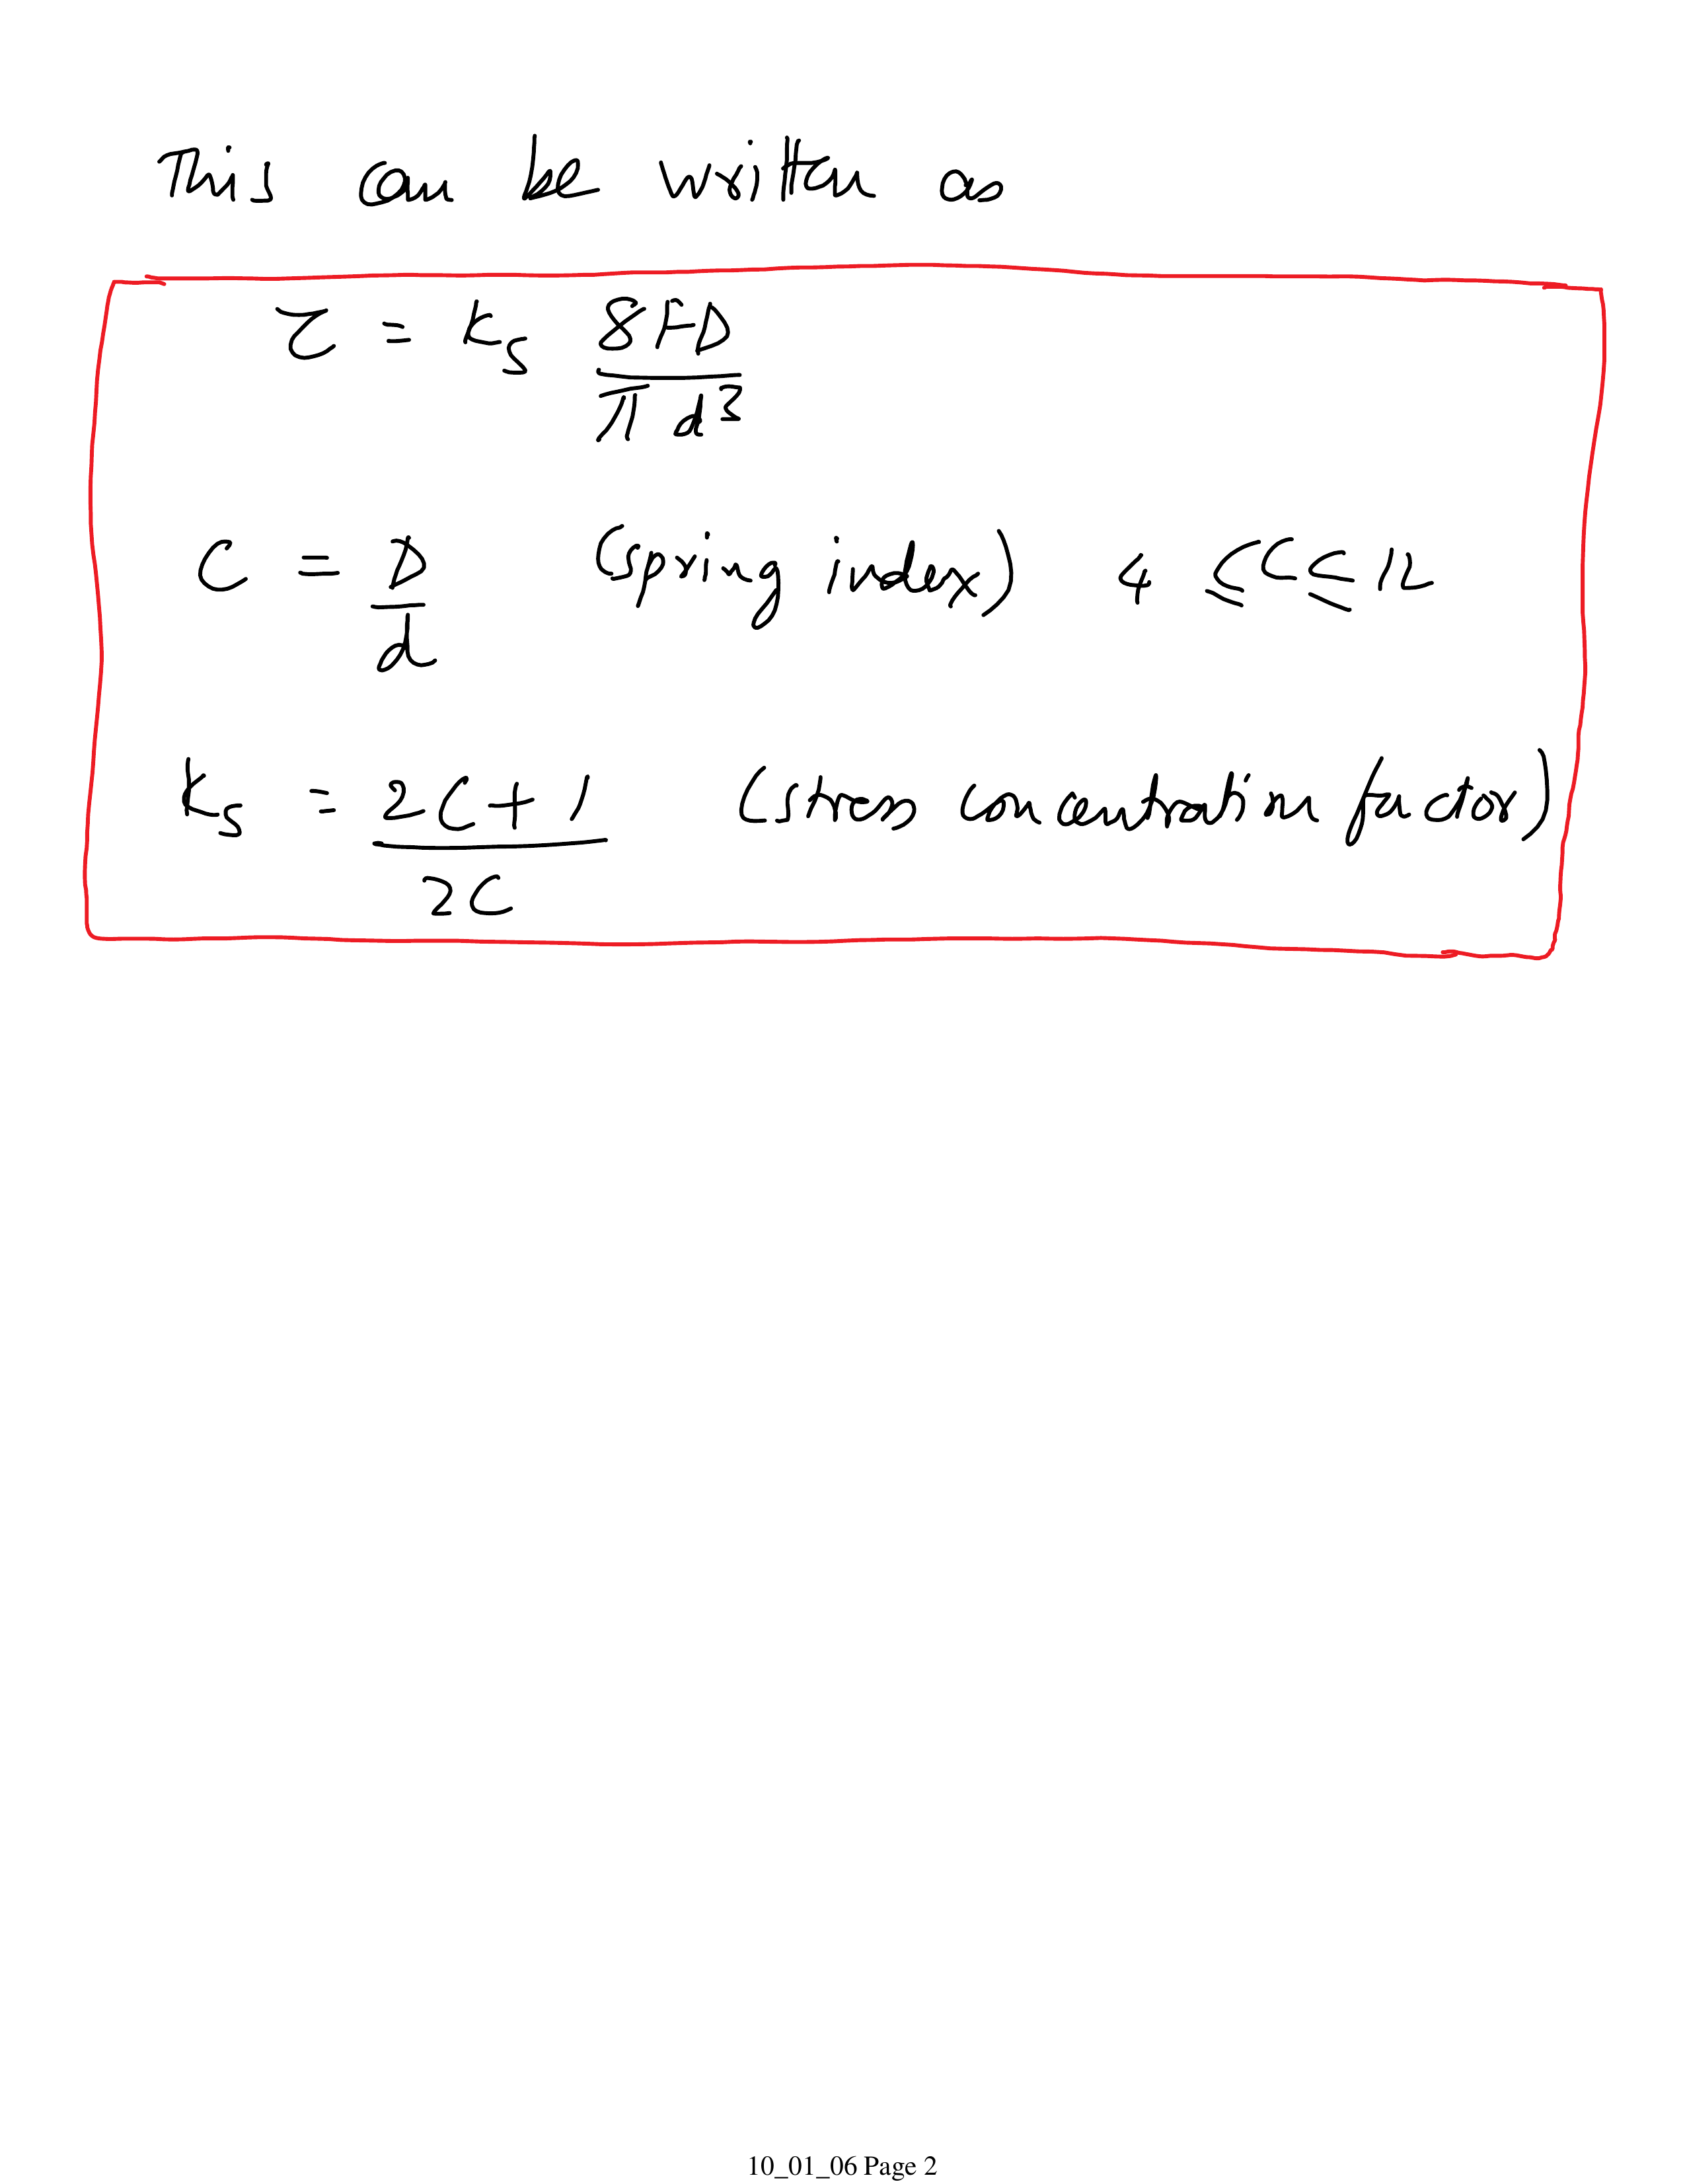 This can be written as
τ = Ks 8FD / π d³
C = D / d (spring index) 4 ≤ C ≤ 12
Ks = 2C + 1 / 2C (stress concentration factor)
10_01_06 Page 2